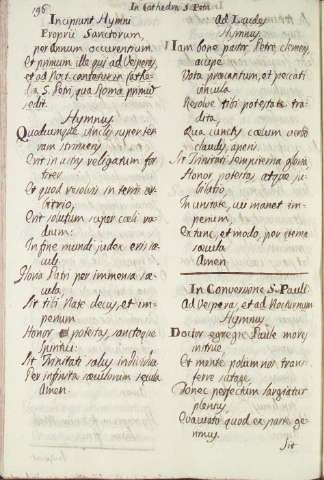 196
In Cathedra S. Petri
Incipiunt Hymni
Proprii Sanctorum,
per Annum occurentium.
Et primum ille qui ad Vesperas,
et ad Noct. cantatur in Cathe-
dra S. Petri, qua Romæ primum
sedit.
Hymnus
Quodcumque vinclis super ter-
ram strinxeris
Erit in astris religatum for-
titer
Et quod resolvis in terris ar-
bitrio,
Erit solutum super cœli ra-
dium:
In fine mundi judex eris sæ-
culi
Gloria Patri per immensa sæ-
cula,
Sit tibi Nate decus, et im-
perium
Honor potestas, sanctoque
Spiritui:
Sit Trinitati salus individua
Per infinita sæculorum sæcula
Amen.
Ad Laudes
Hymnus
Iam bone pastor Petre, clemens
accipe
Vota precantum, et peccati
vincula
Resolve tibi potestate tra-
dita,
Qua cunctis cœlum verbo
claudis, aperis
Sit Trinitati sempiterna gloria
Honor potestas atque ju-
bilatio
In unitate, cui manet im-
perium,
Ex tunc, et modo, per æterna
sæcula
Amen
In Conversione S. Pauli
Ad Vesperas, et ad Nocturnum
Hymnus
Doctor egregie Paule mores
instrue,
Et mente polum nos trans-
ferre satage
Donec perfectum largiatur
plenius,
Evacuato quod ex parte ge-
rimus.
Sit